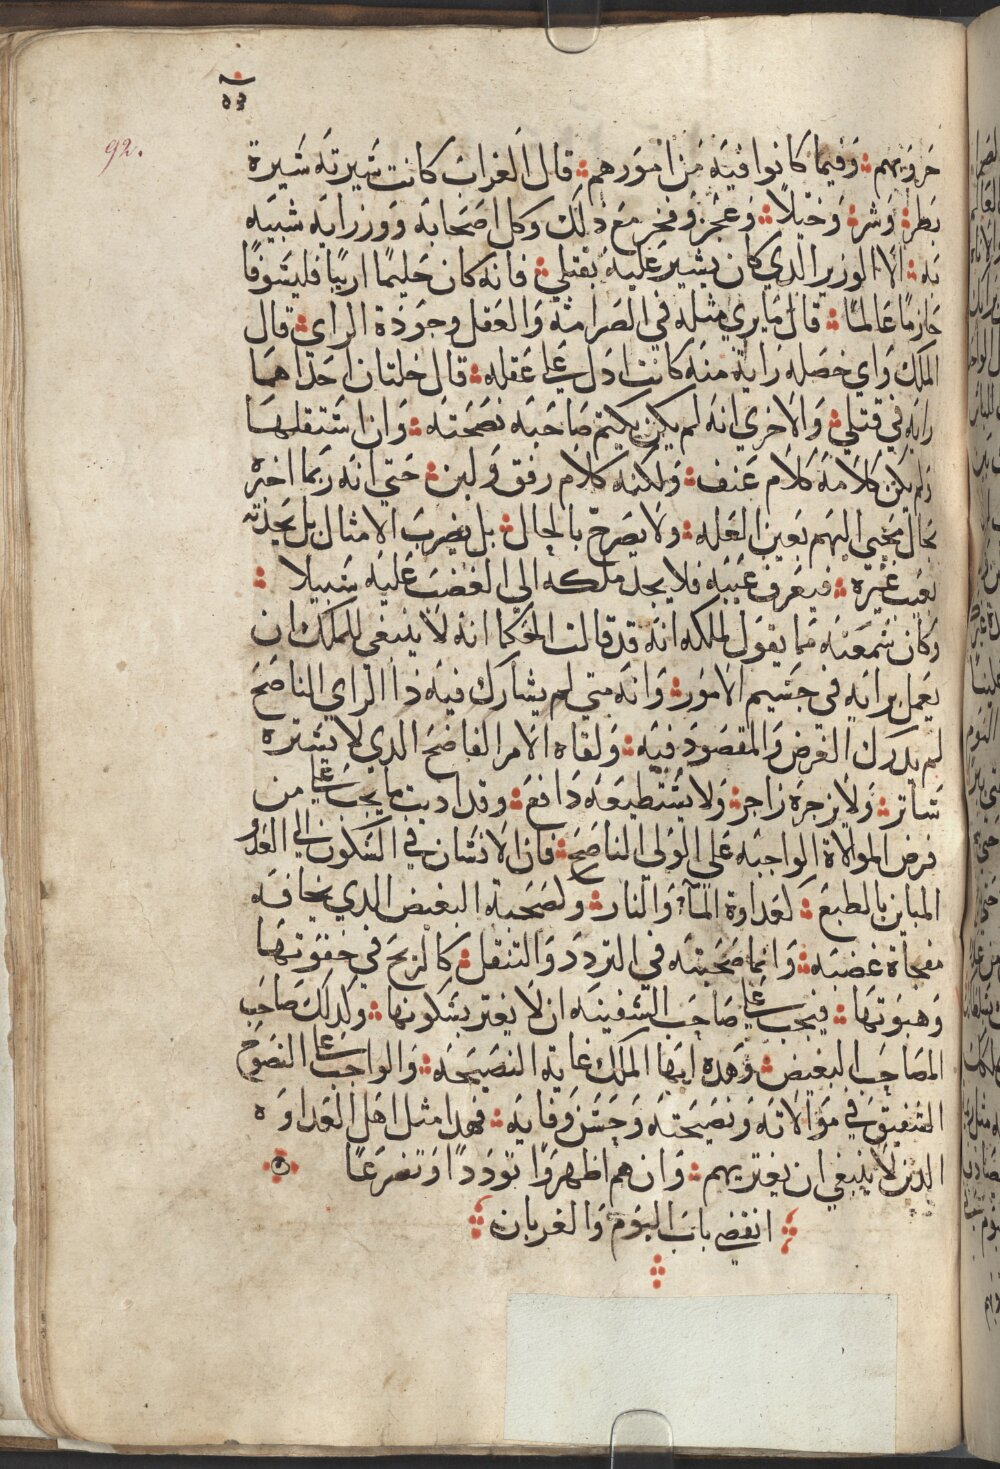 92.
حروبهم وفيما كانوا فيه من امورهم قال الغراب كانت سيرته سيرة
بطر وشر وخيلا وعجز وفخر مع دلك وكل اصحابه ووزرايه شبيه
به الا الوزير الدي كان يشير عليه بقتلي فانه كان حليمًا اريبًا فليسوفًا
حازمًا عالمًا قال ما يري مثله في الصرامه والعقل وجودة الراي قال
الملك واي خصله رايه منه كانت ادل علي عقله قال خلتان احداهما
رايه في قتلي والاخري انه لم يكن يكتم صاحبه نصحته وان استقلها
ولم يكن كلامه كلام عنف ولكنه كلام رفق ولين حتي انه ربما اخبره
بعيب غيره فيعرف عيبه فلا يجد ملكه الي الغضب عليه سبيلا
وكان سمعته مما يقول لملكه انه قد قالت الحكما انه لا ينبغي للملك ان
يعمل برايه في جسيم الامور وانه متي لم يشارك فيه دا الراي الناصح
لم يدرك الغرض والمقصود فيه ولقاه الامر الفاضح الدي لا يستره
ساتر ولا يزجره زاجر ولا يستطيعه دافع وقد اديت ما يجب علي من
فرض الموالاة الواجبه علي الولي الناصح فان الانسان في السكون الي العدو
المباين بالطبع كعداوة المآء والنار ولصحبة البغيض الدي يخافه
مفجاة غضبه وانما صحبته في التردد والتنقل كالريح في خفوتها
وهبوتها فيجب علي صاحب السفينه ان لا يغتر بسكونها وكدلك صاحب
المصاحب البغيض وهده ايها الملك غاية النصيحه والواجب علي النصوح
الشفيق في موالاته ونصيحته وحسن وفايه فهدا مثل اهل العداوه
الدين لا ينبغي ان يغتر بهم وان هم اظهروا توددًا وتضرعًا
انقضي باب البوم والغربان